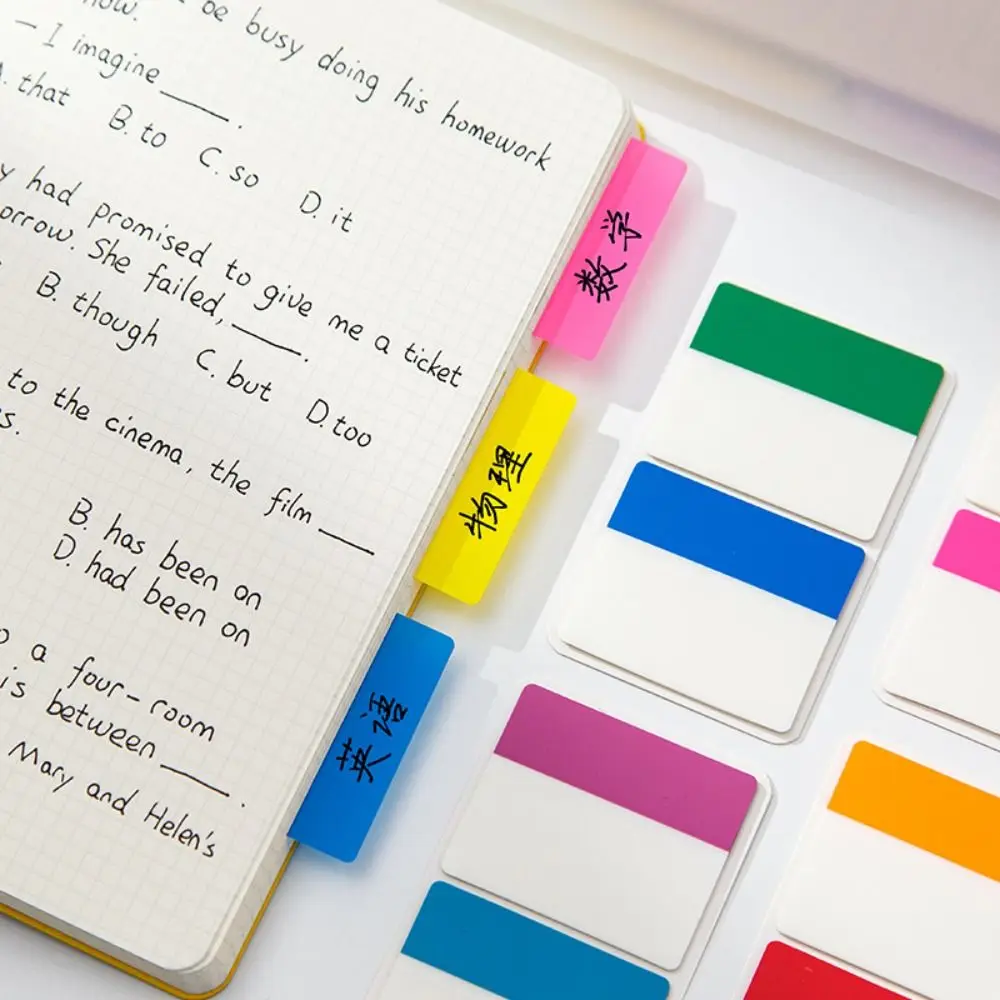 be busy doing his homework
now.
— I imagine ____.
A. that B. to C. so D. it
had promised to give me a ticket
She failed, ____.
B. though C. but D. too
to the cinema, the film ____
B. has been on
D. had been on
a four-room
is between ____.
Mary and Helen's
数学
物理
英语